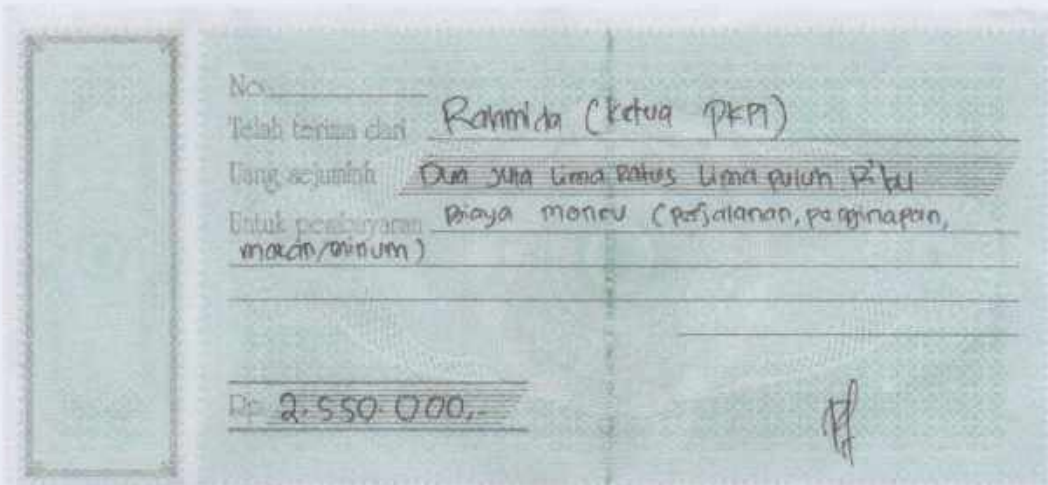 No.
Telah terima dari Rahmida (Ketua PKPI)
Uang sejumlah Dua Juta Lima Ratus Lima puluh Ribu
Untuk pembayaran Biaya monev (perjalanan, penginapan,
makan/minum)
Rp. 2.550.000,-